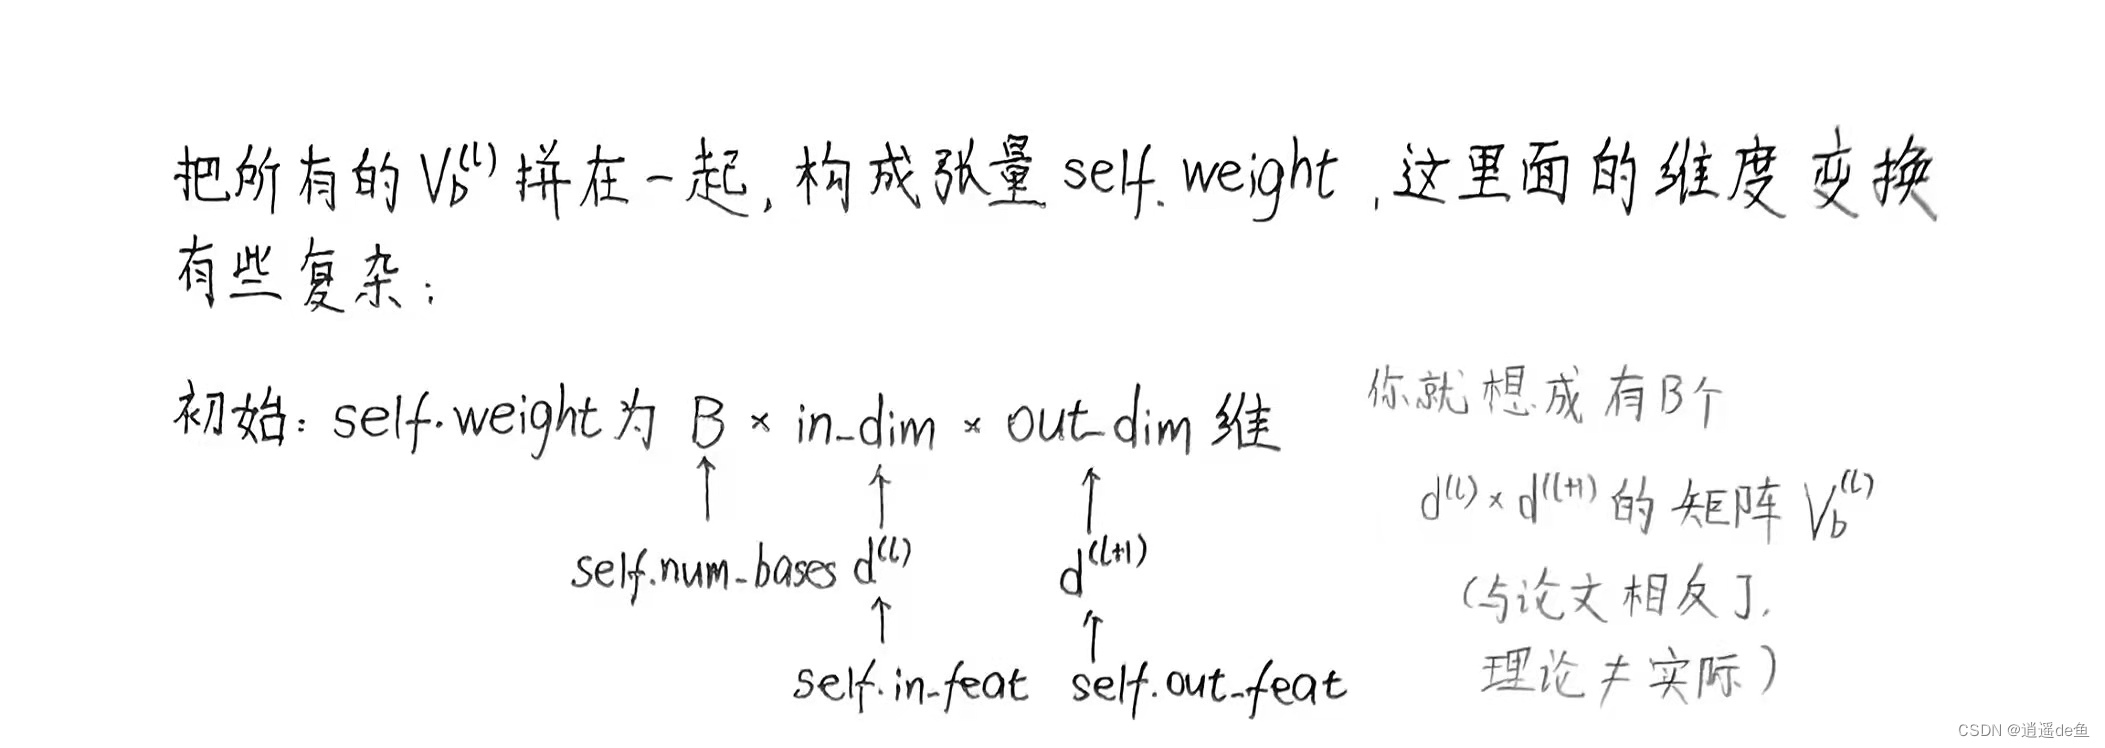 把所有的 V_b^(l) 拼在一起, 构成张量 self.weight, 这里面的维度变换
有些复杂:
初始: self.weight 为 B × in_dim × out_dim 维
↑ ↑ ↑
self.num_bases d^(l) d^(l+1)
↑ ↑
self.in_feat self.out_feat
你就想成有B个
d^(l) × d^(l+1) 的矩阵 V_b^(l)
(与论文相反了,
理论 ≠ 实际)
CSDN @逍遥de鱼